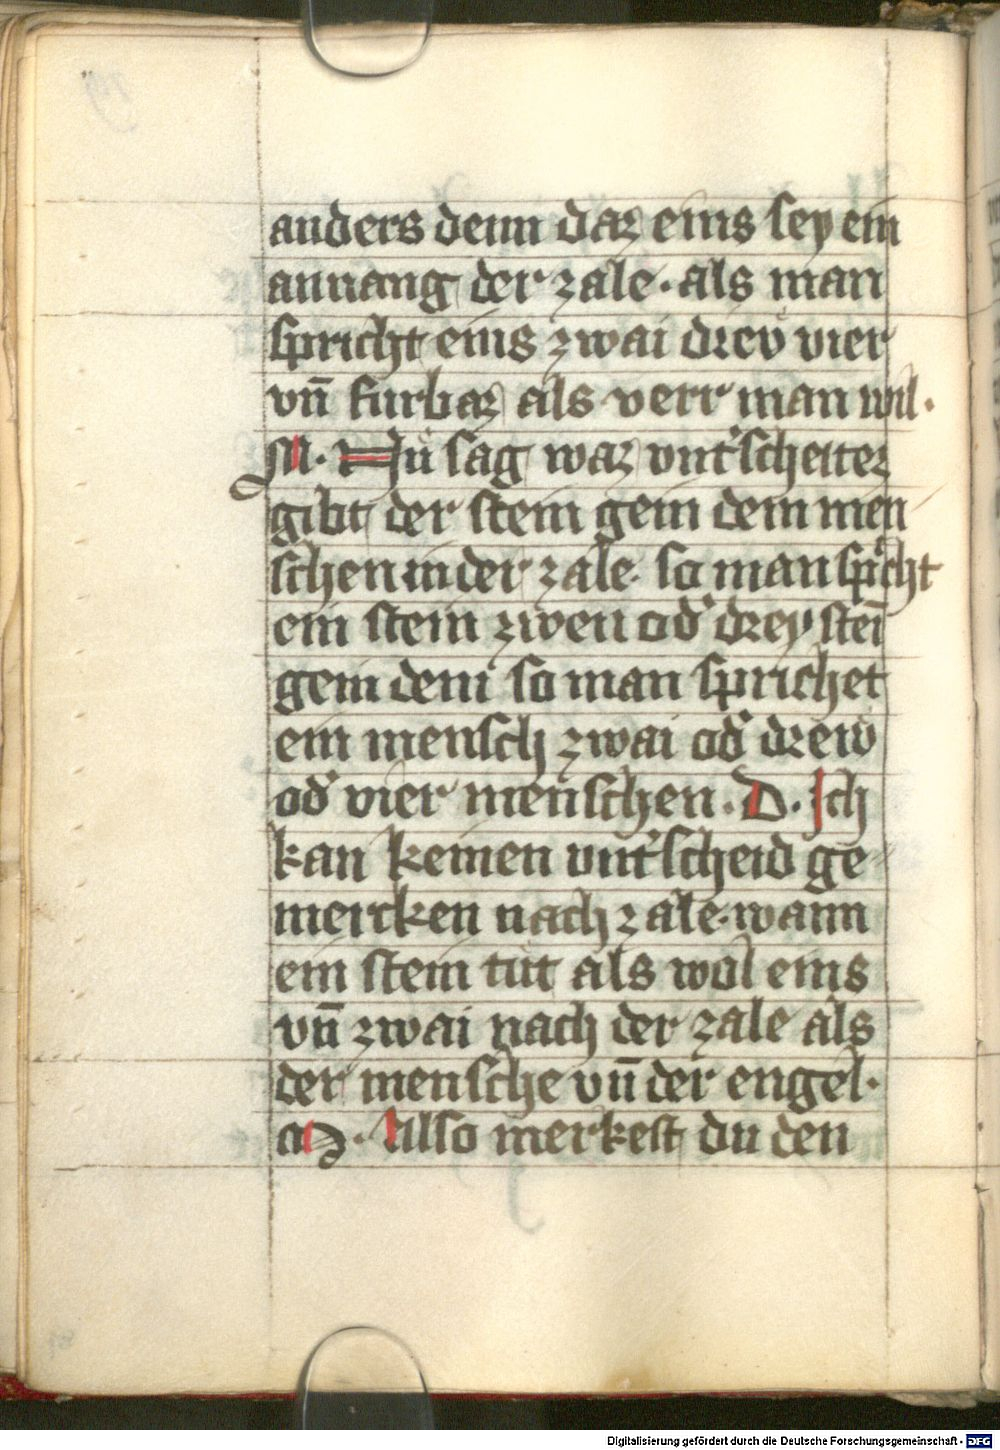 anders denn daz eins sey ein
anuang der zale · als man
spricht eins zwai drev vier
vn̄ furbaz als verr man wil ·
M · Nu sag waz vnt᾽scheitez
gibt der stein gein dem men
schen in der zale · so man sp᾽cht
ein stein zwen od᾽ drey stei᷑
gein dem so man sprichet
ein mensch zwai od᾽ drew
od᾽ vier menschen · D · Ich
kan keinen vnt᾽scheid ge⸗
mercken nach zale · wann
ein stein tut als wol eins
vn̄ zwai nach der zale als
der mensche vn̄ der engel ·
M · Also merkest du den
Digitalisierung gefördert durch die Deutsche Forschungsgemeinschaft - DFG